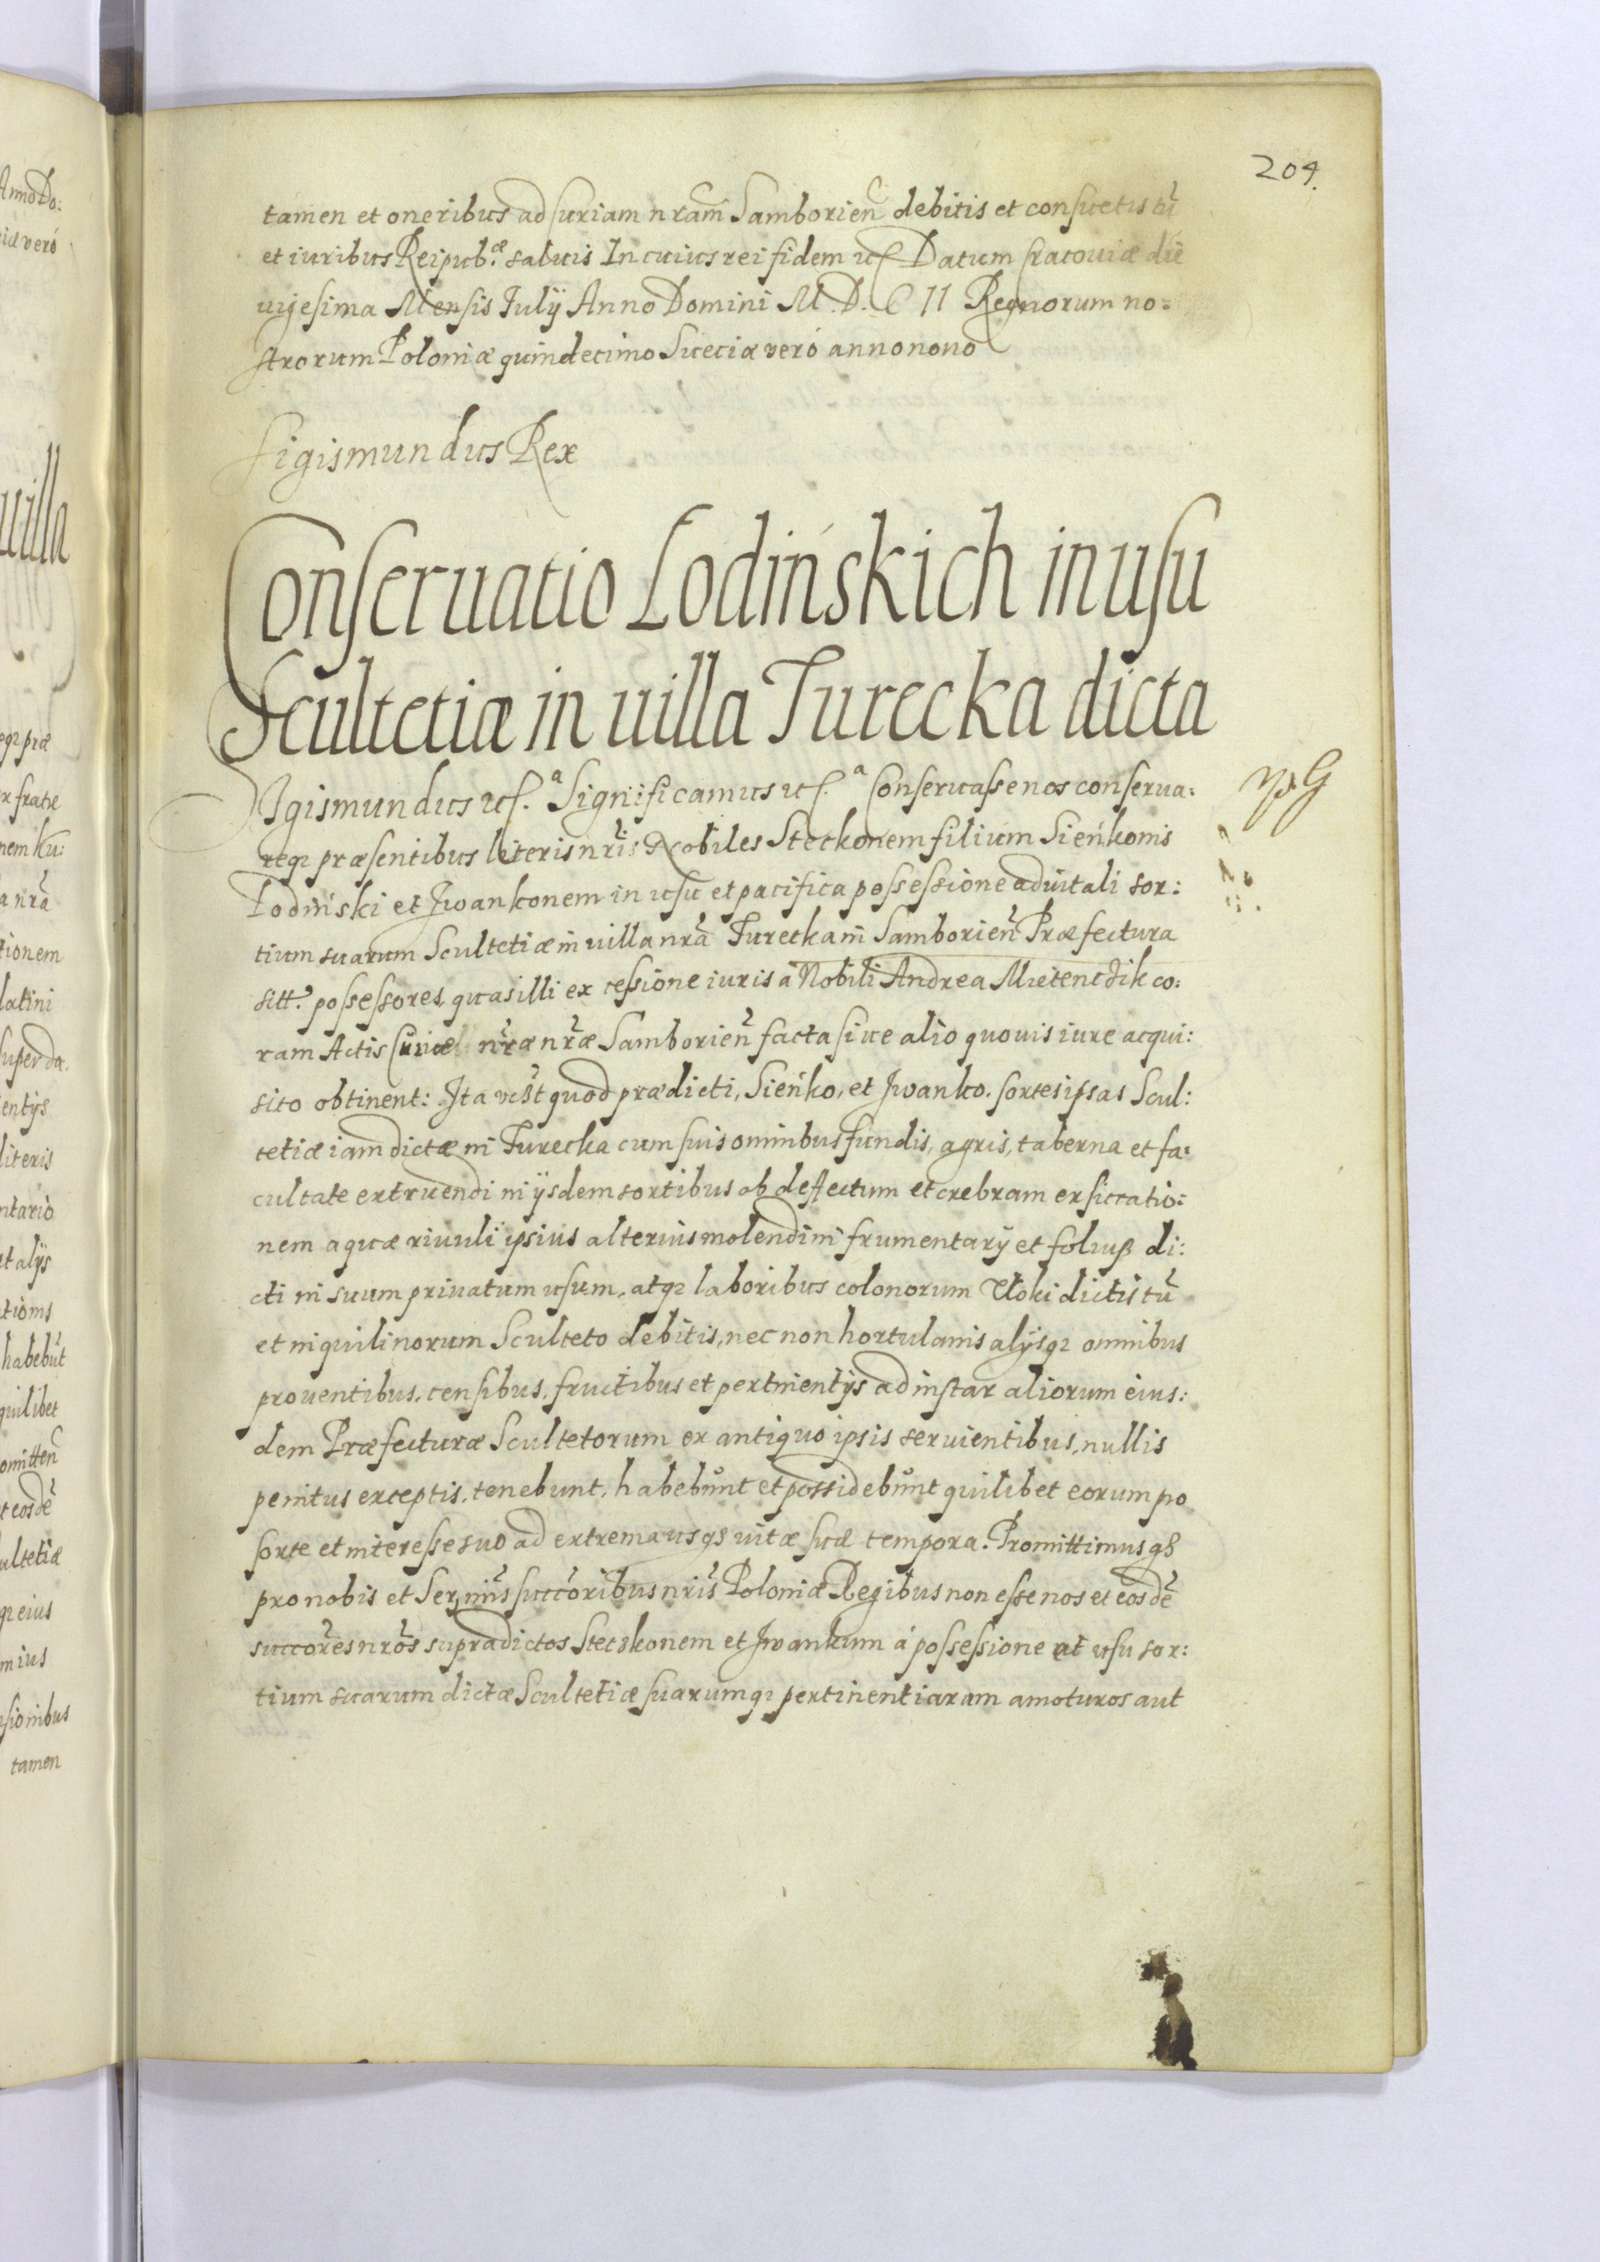 204.
tamen et oneribus ad Curiam nram Samborien debitis et consuetis tū
et iuribus Reipub.æ saluis In cuius rei fidem etc Datum Cracouiæ die
uigesima Mensis Iulÿ Anno Domini M.D.C II Regnorum no=
strorum Poloniæ quindecimo Sueciæ veró anno nono
Sigismundus Rex
Conseruatio Lodińskich in usu
Scultetiæ in uilla Turecka dicta
Sigismundus etc.ª Significamus etc.ª Conseruasse nos conserua:
reqȝ præsentibus literis nris Nobiles Steckonem filium Sieńkonis
Łodiński et Jwankonem in usu et pacifica possessione aduitali sor:
tium suarum Scultetiæ in uilla nrā Turecka in Samborien Præfectura
sitt. possessores, quas illi ex cessione iuris a Nobili Andrea
ram Actis Curiæ nræ nræ Samborien facta siue alio quouis iure acqui:
sito obtinent: Jta vt quod prædicti, Sieńko, et Jwanko. sortes ipsas Scul:
tetiæ iam dictæ in Turecka cum suis omnibus fundis, agris, taberna et fa:
cultate extruendi in ÿsdem sortibus ob defectum et crebram exsiccatio:
nem aquæ riuuli ipsius alterius molendini frumentarÿ et foluß di:
cti in suum priuatum usum, atqȝ laboribus colonorum Tłoki dictis tū
et inquilinorum Sculteto debitis, nec non hortulanis alÿsqȝ omnibus
prouentibus, censibus, fructibus et pertinentÿs ad instar aliorum eius:
dem Præfecturæ Scultetorum ex antiquo ipsis seruientibus, nullis
penitus exceptis, tenebunt, habebunt et possidebunt quilibet eorum po
sorte et interesse suo ad extrema usqȝ uitæ suæ tempora. Promittimus qȝ
pro nobis et Sermis succoribus nris Poloniæ Regibus non esse nos et eosdē
succores nros supradictos Stecskonem et Jwankum á possessione et usu sor:
tium suarum dictæ Scultetiæ suarumqȝ pertinentiaram amoturos aut